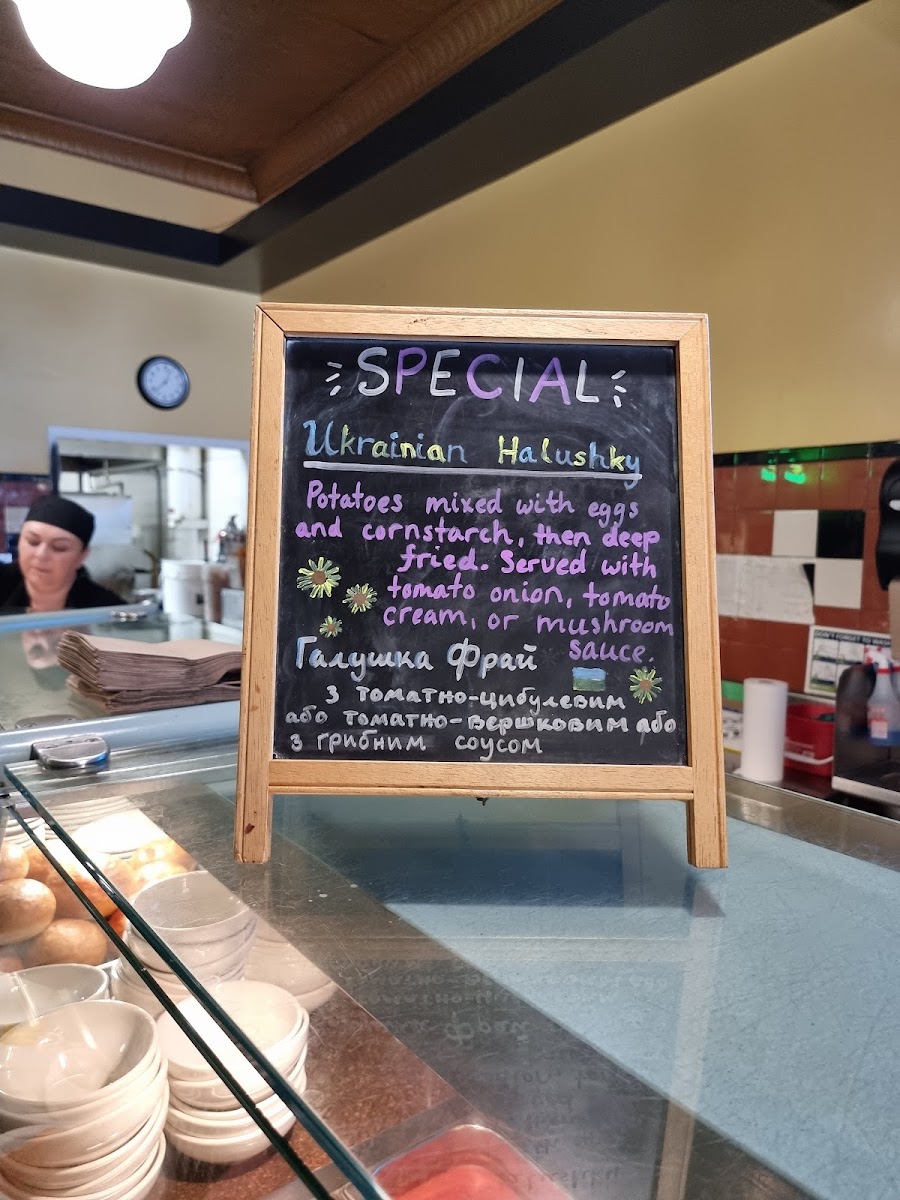 SPECIAL
Ukrainian Halushky
Potatoes mixed with eggs
and cornstarch, then deep
fried. Served with
tomato onion, tomato
cream, or mushroom
sauce.
Галушка Фрай
з томатно-цибулевим
або томатно-вершковим або
з грибним соусом
DON'T FORGET TO WASH